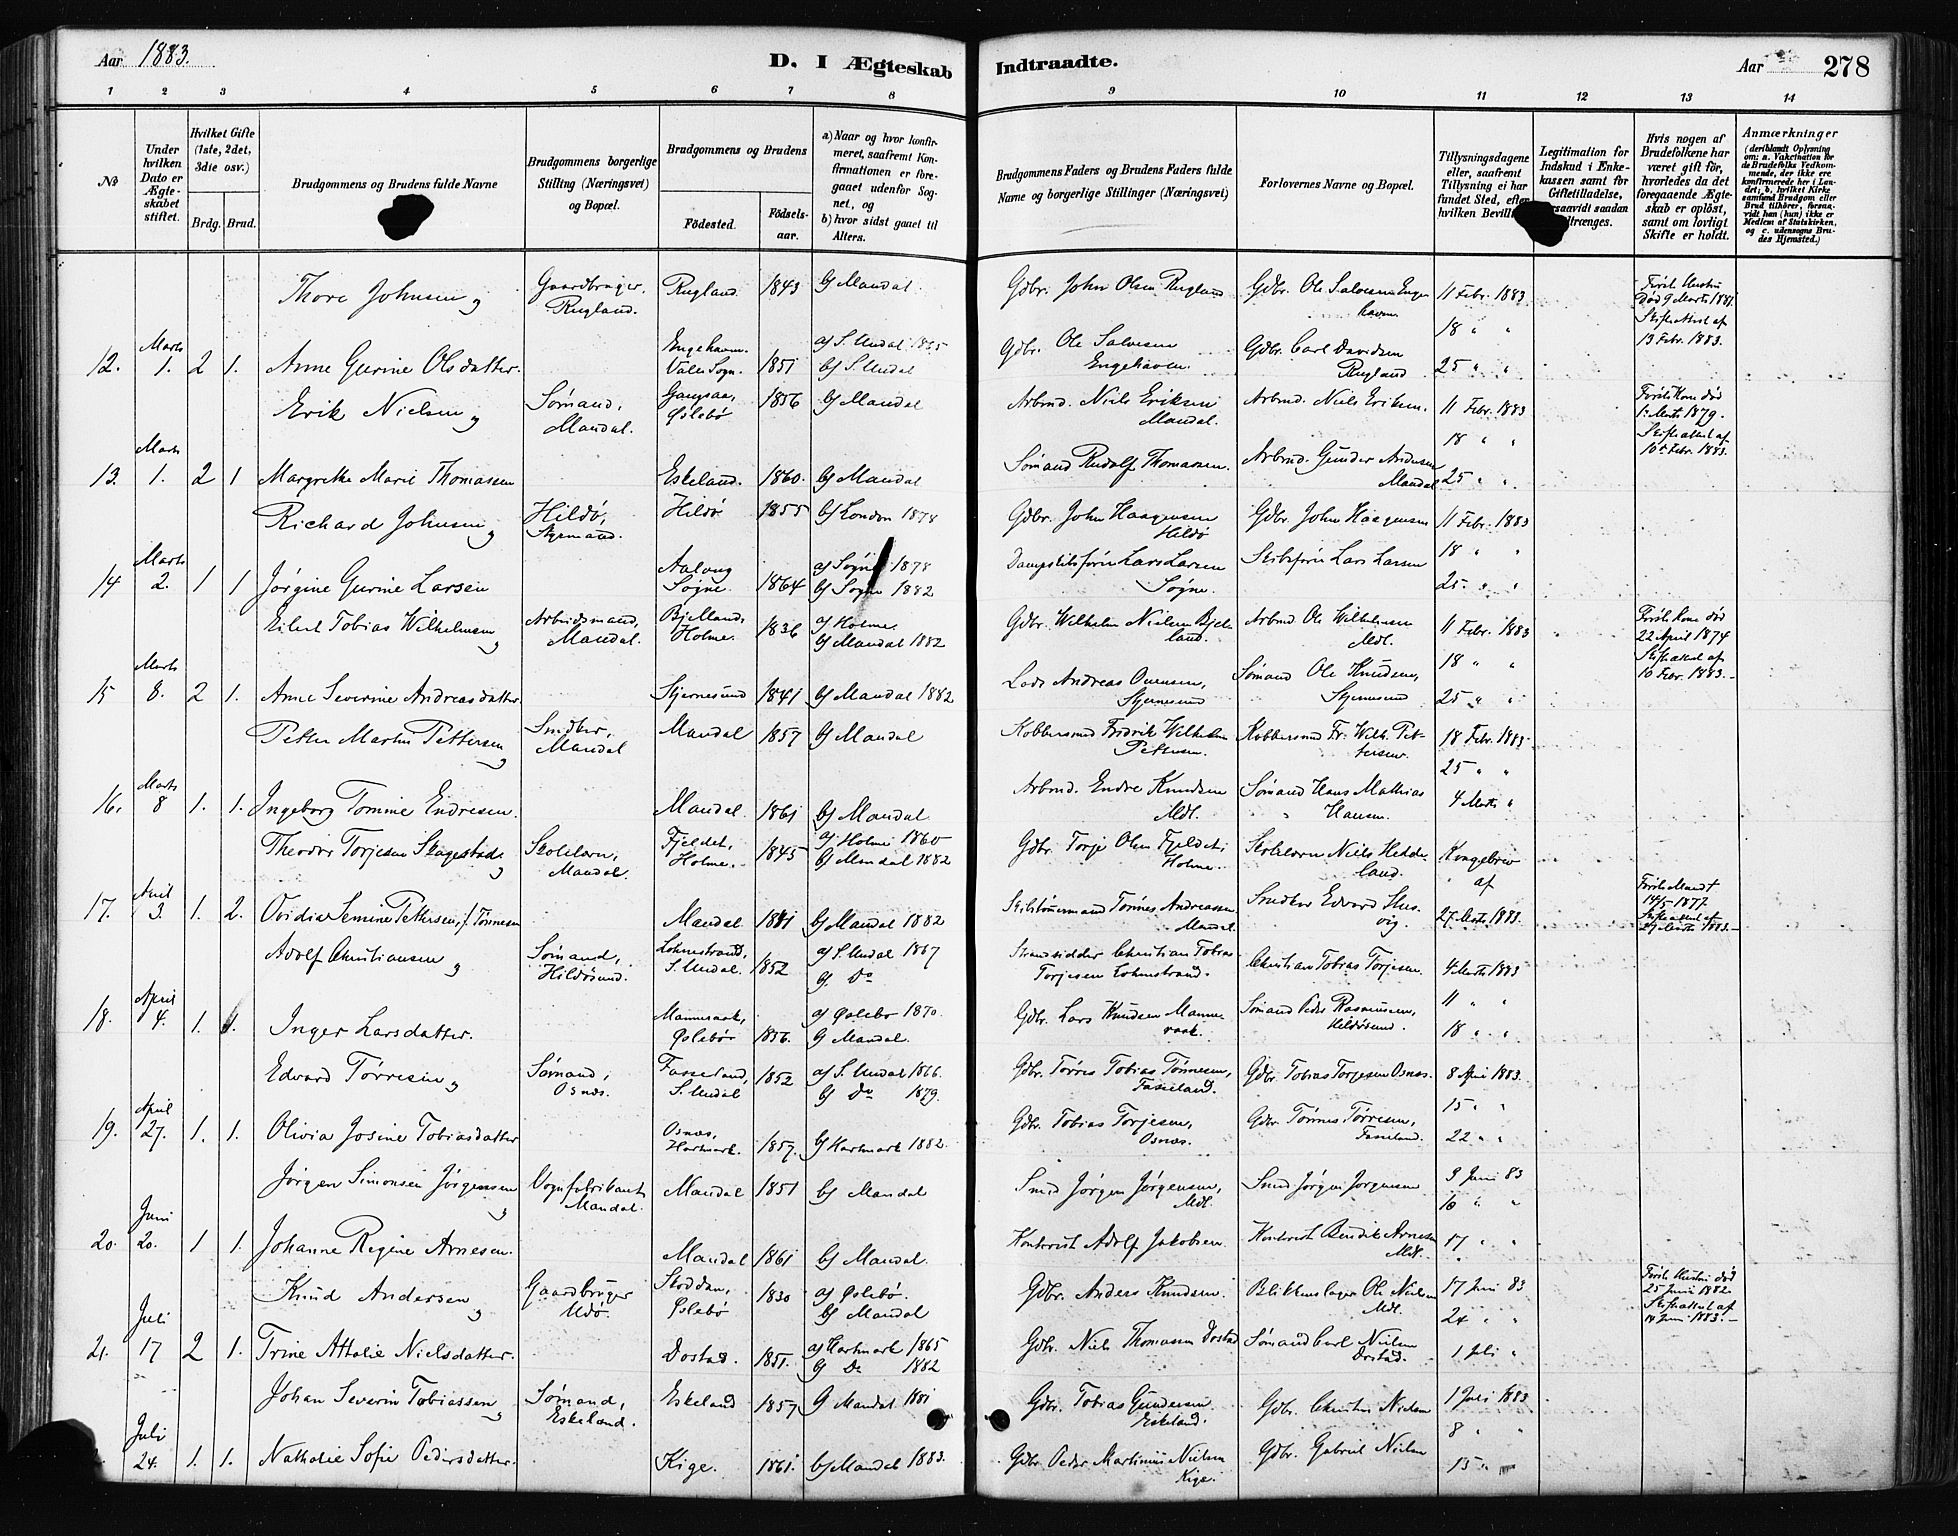 Aar 1883.
D. I Ægteskab Indtraadte.
Aar 278
1 2 3 4 5 6 7 8 9 10 11 12 13 14
No
Under hvilken Dato er Ægteskabet stiftet.
Hvilket Gifte (1ste, 2det, 3die osv.)
Brdg. Brud.
Brudgommens og Brudens fulde Navne
Brudgommens borgerlige Stilling (Næringsvei) og Bopæl.
Brudgommens og Brudens
Fødested. Fødselsaar.
a) Naar og hvor konfirmeret, saafremt Konfirmationen er foregaaet udenfor Sognet, og
b) hvor sidst gaaet til Alters.
Brudgommens Faders og Brudens Faders fulde Navne og borgerlige Stillinger (Næringsvei)
Forlovernes Navne og Bopæl.
Tillysningsdagene eller, saafremt Tillysning ei har fundet Sted, efter hvilken Bevilling
Legitimation for Indskud i Enkekassen samt for Giftetilladelse, saavidt saadan
Hvis nogen af Brudefolkene har været gift før, hvorledes da det foregaaende Ægteskab er opløst, samt om lovligt Skifte er holdt.
Anmærkninger
Thore Johnsen og Gaardbruger, Rugland. Rugland 1843 b) Mandal Gdbr. John Olsen Rugland Gdbr. Ole Salvesen Engehavn 11 Febr. 1883 Første Hustru død 9 Marts 1881. Skifteattest af 13 Febr. 1883.
18 " "
12. Marts 1. 2 1. Anne Gurine Olsdatter. Engehavn Valle Sogn. 1851 a) S. Undal b) S. Undal Gdbr. Ole Salvesen Engehaven. Gdbr. Carl Davidsen Rugland 25 " "
Erik Nielsen og Sømand, Mandal. Øslebø 1856 b) Mandal Arbmd. Niels Eriksen Mandal. Arbmd. Niels Eriksen. 11 Febr. 1883 Første Kone død 1 Marts 1879. Skifteattest af 10 Febr. 1883.
18 " "
13. Marts 1. 2 1 Margrethe Marie Thomassen Eskeland. 1860. b) Mandal Sømand Rudolf Thomassen. Arbmd. Gunder Andersen Mandal 25 " "
Richard Johnsen og Hildø, Styrmand. Hildø 1855 b) London 1878 Gdbr. John Haagensen Hildø Gdbr. John Haagensen 11 Febr. 1883
18 " "
14 Marts 2. 1 1 Jørgine Gurine Larsen Søgne 1864 a) Søgne 1878 b) Søgne 1882 Lars Larsen Søgne. Skibsfører Lars Larsen 25. " "
Eilert Tobias Wilhelmsen og Arbeidsmand, Mandal. Bjelland, Holme. 1836 a) Holme. b) Mandal 1882 Gdbr. Wilhelm Nielsen Bjelland. Arbmd Ole Wilhelmsen Mdl. 11 Febr. 1883 Første Kone død 22 April 1874 Skifteattest af 10 Febr. 1883.
18 " "
15 Marts 8. 2 1. Anne Severine Andreasdatter Skjernesund 1841 b) Mandal 1882 Lods Andreas Skjernesund Sømand Ole Knudsen, Skjernesund 25 " "
Petter Martin Pettersen og Snedker, Mandal Mandal 1857 b) Mandal Kobbersmed Fredrik Wilhelm Pettersen. Kobbersmed Fr. Wilh. Pettersen. 18 Febr. 1883
25 " "
16. Marts 8 1. 1. Ingeborg Tomine Endresen. Mandal. 1861 b) Mandal Arbmd. Endre Knudsen Mdl. Sømand Hans Mathias Hansen. 4 Marts "
Theodor Torjesen Skagestad og Skolelærer, Mandal. Fjeldet, Holme. 1845 a) Holme 1860 b) Mandal 1882 Gdbr. Torje Olsen Fjeldet, Holme. Skolelærer Niels Hedeland. Kongebrev af
17. April 3. 1. 2. Ovidia Semine Pettersen, f. Tønnesen Mandal 1841 b) Mandal 1882 Skibstømmermand Tønnes Andreassen Mandal. Snedker Edvard 27 Marts 1883. Første Mand † 14/5 1877 Skifteattest af 29 Marts 1883.
Adolf Christiansen og Sømand, Hildøsund. Lohnestrand, S. Undal. 1852 a) S. Undal 1867 b) Do Strandsidder Christian Tobias Torjesen Lohnestrand. Christian Tobias Torjesen. 4 Marts 1883
11 " "
18. April 4. 1. 1. Inger Larsdatter. Øslebø 1856. a) Øslebø 1870. b) Mandal. Gdbr. Lars Knudsen Sømand Peder Rasmussen, Hildøsund. 18 " "
Edvard Tørresen og Sømand, Osnæs. Fasseland, S. Undal 1852 a) S. Undal 1866. b) Do 1879. Gdbr. Tørres Tobias Tønnesen, Fasseland. Gdbr. Tobias Torjesen Osnæs. 8 April 1883.
15 " "
19. April 27. 1. 1. Olivia Josine Tobiasdatter Osnæs, Hartmark. 1857. b) Hartmark 1882. Gdbr. Tobias Torjesen, Osnæs. Gdbr. Tønnes Tørresen, Fasseland. 22 " "
Jørgen Simonsen Jørgensen og Vognfabrikant Mandal. Mandal 1851 b) Mandal Smed Jørgen Jørgensen, Mdl. Smed Jørgen Jørgensen 3 Juni 83
10 " "
20. Juni 20. 1 1. Johanne Regine Arnesen. Mandal 1861 b) Mandal. Kontorist Adolf Jakobsen Kontorist Bendik Arnesen Mdl. 17 " "
Knud Andersen og Gaardbruger Udø. Skoddan, Øslebø 1830 a) Øslebø. b) Mandal Gdbr. Anders Knudsen. Blikkenslager Ole Nielsen Mdl. 17 Juni 83 Første Hustru død 25 Juni 1882 Skifteattest af 14 Juni 1883.
24 " "
21. Juli 17 2 1. Trine Attalie Nielsdatter. Dostad. 1851. a) Hartmark 1865 b) Do 1882 Gdbr. Niels Thomassen Dostad Sømand Carl Nielsen Dostad. 1 Juli "
Johan Severin Tobiassen og Sømand, Eskeland. Eskeland 1857 b) Mandal 1881 Gdbr. Tobias Gundersen Eskeland. Gdbr. Christen Nielsen 1 Juli 1883
8 " "
Juli 24. 1. 1. Nathalie Sofie Pedersdatter. Kige. 1861. b) Mandal 1883. Gdbr. Peder Martinius Nielsen Kige. Gdbr. Gabriel Nielsen 15 " "